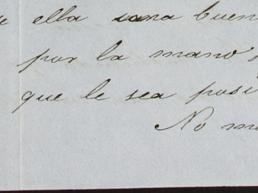 ella una buen
por la mano
que le sea posi
No m